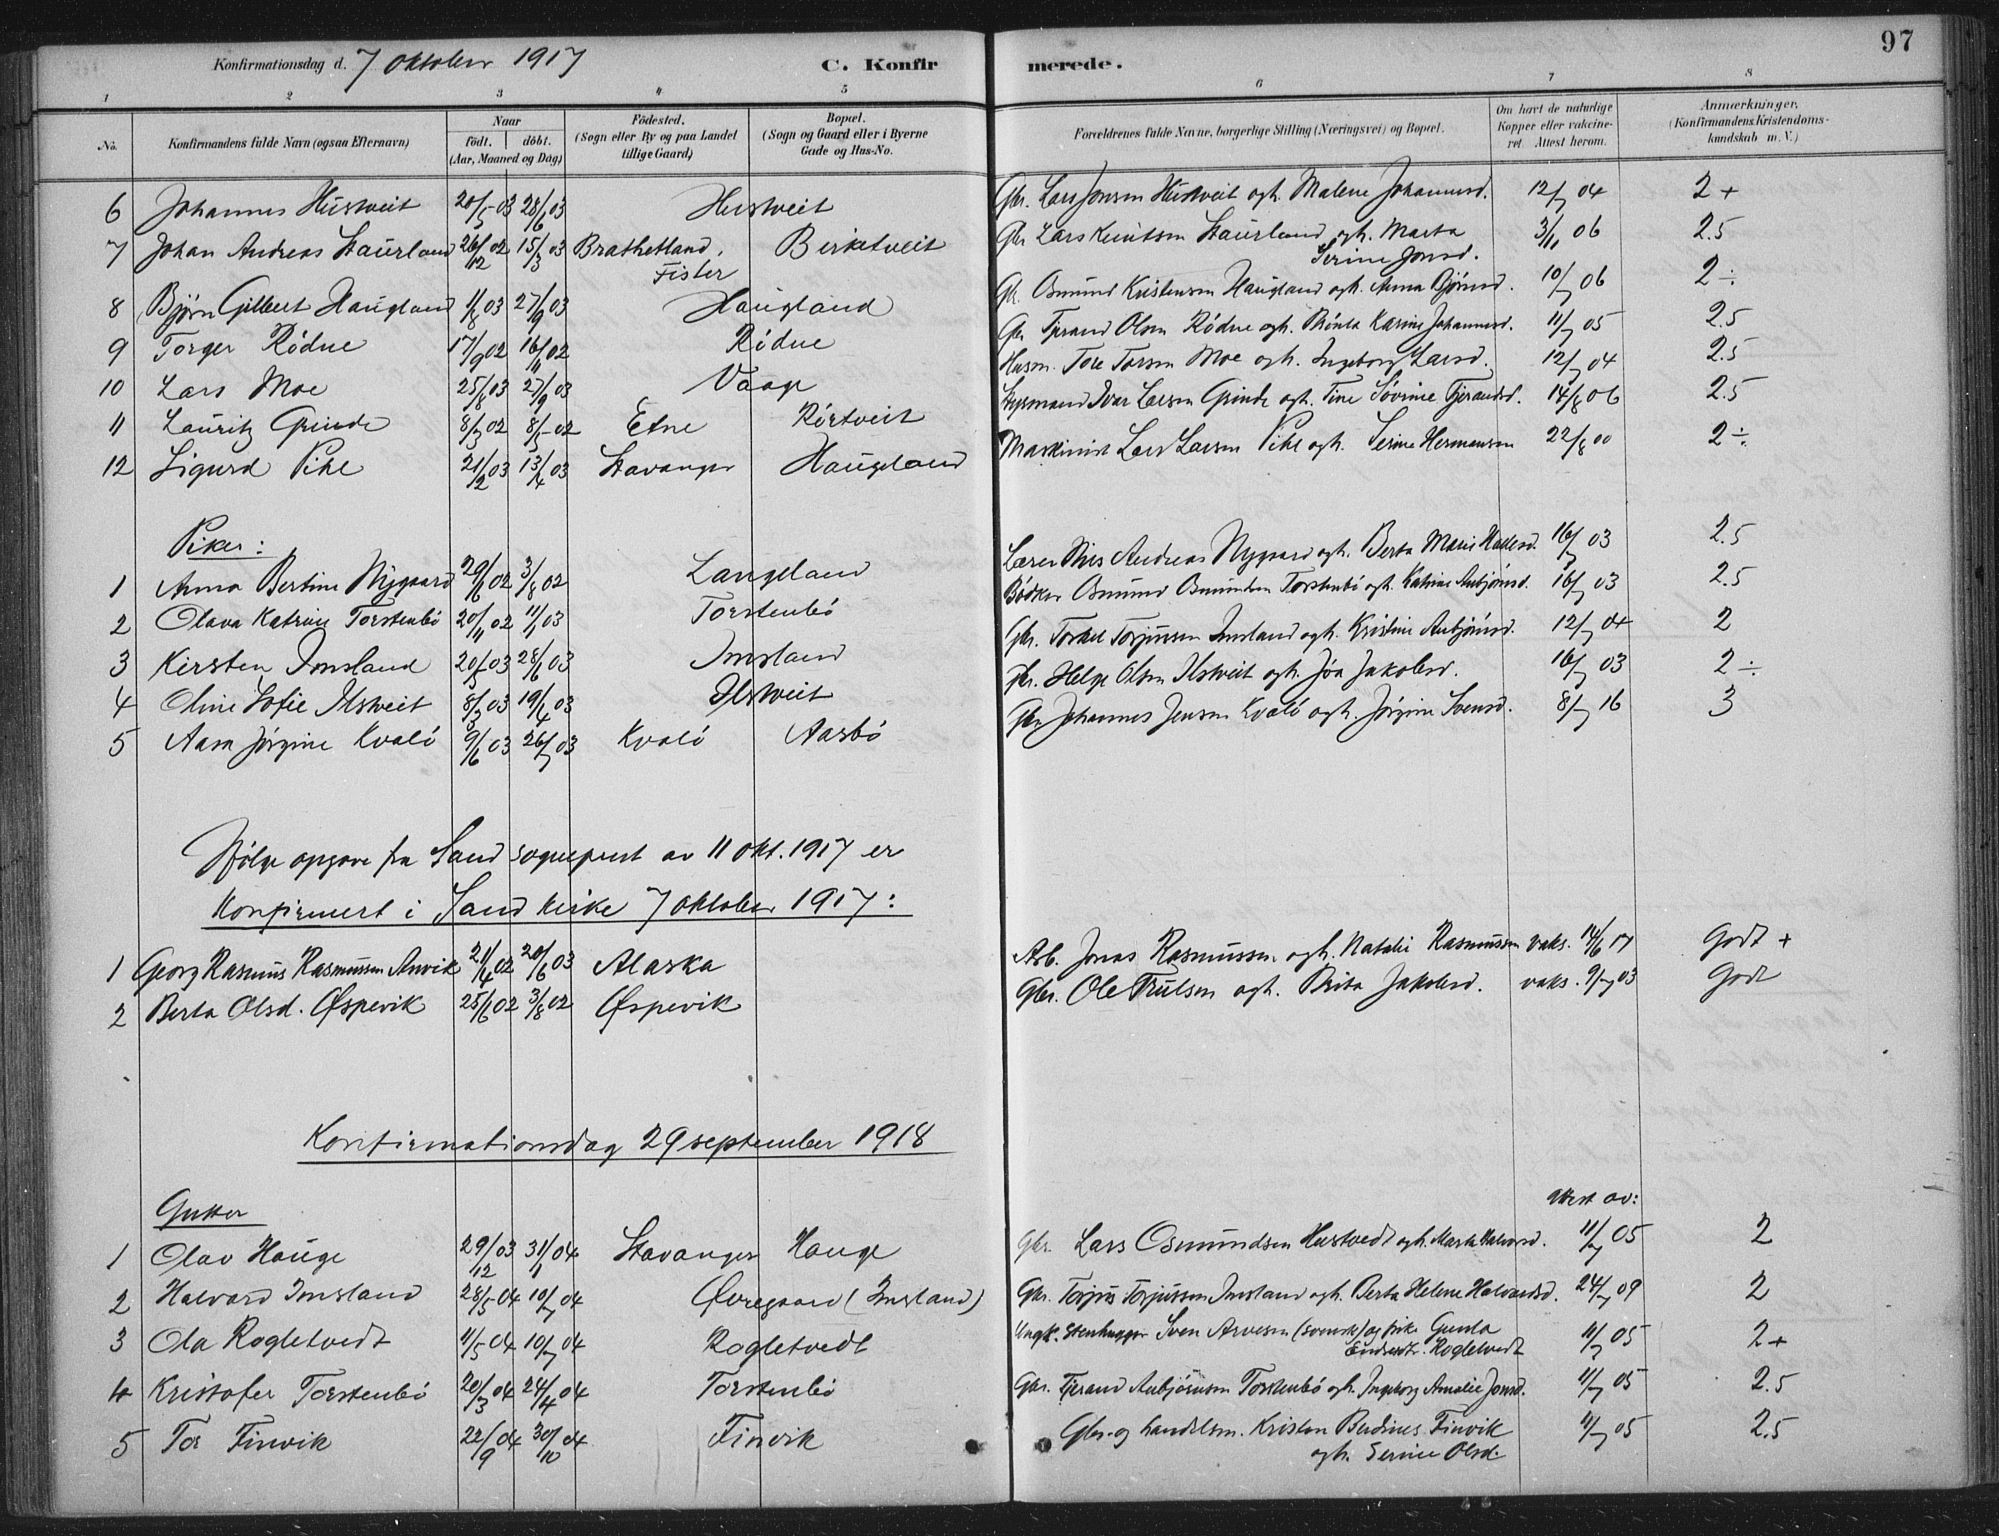 97
Konfirmationsdag d. 7 Oktober 1917 C. Konfirmerede.
1 2 3 4 5 6 7 8
No. Konfirmandens fulde Navn (ogsaa Efternavn) Naar födt. döbt. (Aar, Maaned og Dag) Födested. (Sogn eller By og paa Landet tillige Gaard) Bopæl. (Sogn og Gaard eller i Byerne Gade og Hus-No. Forældrenes fulde Navne, borgerlige Stilling (Næringsvei) og Bopæl. Om havt de naturlige Kopper eller vakcineret. Attest herom. Anmærkninger. (Konfirmandens Kristendomskundskab m. V.)
6 Johannes Hustveit 20/5 03 28/6 03 Hustveit Gbr. Lars Jonsen Hustveit og h. Malene Johannesd. 12/7 04 2+
7 Johan Andreas Staurland 26/12 02 15/3 03 Brathetland, Fister Birketveit Gbr Lars Knutsen Staurland og h. Marta Serine Jonsd. 3/11 06 2.5
8 Bjørn Gilbert Haugland 1/8 03 27/9 03 Haugland Gbr. Osmund Kristensen Haugland og h. Anna Bjørnsd. 10/7 06 2÷
9 Torger Rødne 17/9 02 16/11 02 Rødne Gbr Tjerand Olsen Rødne og h. Karine Johannesd. 11/7 05 2.5
10 Lars Moe 25/8 03 27/9 03 Vaage Husm. Tore Torsen Moe og h. Ingeborg Larsd. 12/7 04 2.5
11 Lauritz Grinde 8/3 02 8/5 02 Etne Rörtveit Ivar Larsen Grinde og h. Tine Sövrine Tjerandsd. 14/8 06 2.5
12 Sigurd Pihl 21/2 03 13/4 03 Stavanger Haugeland Maskinist Lars Larsen Pihl og h. Serine Hermansen 22/8 00 2÷
Piker:
1 Anna Bertine Nygaard 29/6 02 3/8 02 Langeland Lærer Nils Andreas Nygaard og h. Berta Marie 16/7 03 2.5
2 Olava Katrine Torstenbö 20/11 02 11/1 03 Torstenbö Bødker Osmund Osmundsen Torstenbö og h. Katrine Anbjörnsd. 16/7 03 2.5
3 Kirsten Imsland 20/5 03 28/6 03 Imsland Gbr. Torkel Torjussen Imsland og h. Kristine Anbjörnsd. 12/7 04 2
4 Oline Sofie Ilstveit 8/3 03 19/4 03 Ilstveit Gbr. Helge Olsen Ilstveit og h. Jóa Jakobsd. 16/7 03 2÷
5 Aasa Jørgine Kvalö 9/6 03 26/7 03 Kvalö Aarbö Gbr Johannes Jensen Kvalö og h. Jørgine Svensd. 8/7 16 3
Ifölge opgave fra Sand sogneprest av 11 Okt. 1917 er
Konfirmert i Sand kirke 7 Oktober 1917:
1 Georg Rasmus Rasmussen Anvik 21/4 02 20/6 03 Alaska Arb. Jonas Rasmussen og h. Natalie Rasmussen vaks. 14/6 17 Godt +
2 Berta Olsd. Øspevik 25/6 02 3/8 02 Øspevik Gbr. Ole Trulsen og h. Brita Jakobsd. vaks. 9/7 03 Godt
Konfirmationsdag 29 september 1918
Gutter Attest av:
1 Olav Hauge 29/12 03 31/1 04 Stavanger Hauge Gbr. Lars Osmundsen Hustvedt og h. Marta Halvorsd. 11/7 05 2
2 Halvard Imsland 28/5 04 10/7 04 Øvregaard (Imsland) Gbr. Torjus Torjussen Imsland og h. Berta Helene Halvardsd. 24/7 09 2
3 Ola Rogletvedt 11/5 04 10/7 04 Rogletvedt Ungk. Stenhugger Sven Arvesen (svensk) og pike Gunla Endresdtr. Rogletvedt 11/7 05 2+
4 Kristofer Torstenbö 20/3 04 24/4 04 Torstenbö Gbr. Tjerand Anbjörnsen Torstenbö og h. Ingeborg Amalie Jonsd. 11/7 05 2.5
5 Tor Finvik 22/9 04 30/10 04 Finvik Gbr. og handelsm. Kristen Berdines Finvik og h. Serine Olsd. 11/7 05 2.5